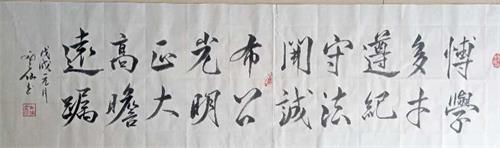 博學
多才
遵紀
守法
開誠
布公
光明
正大
高瞻
遠矚
戊戌元月